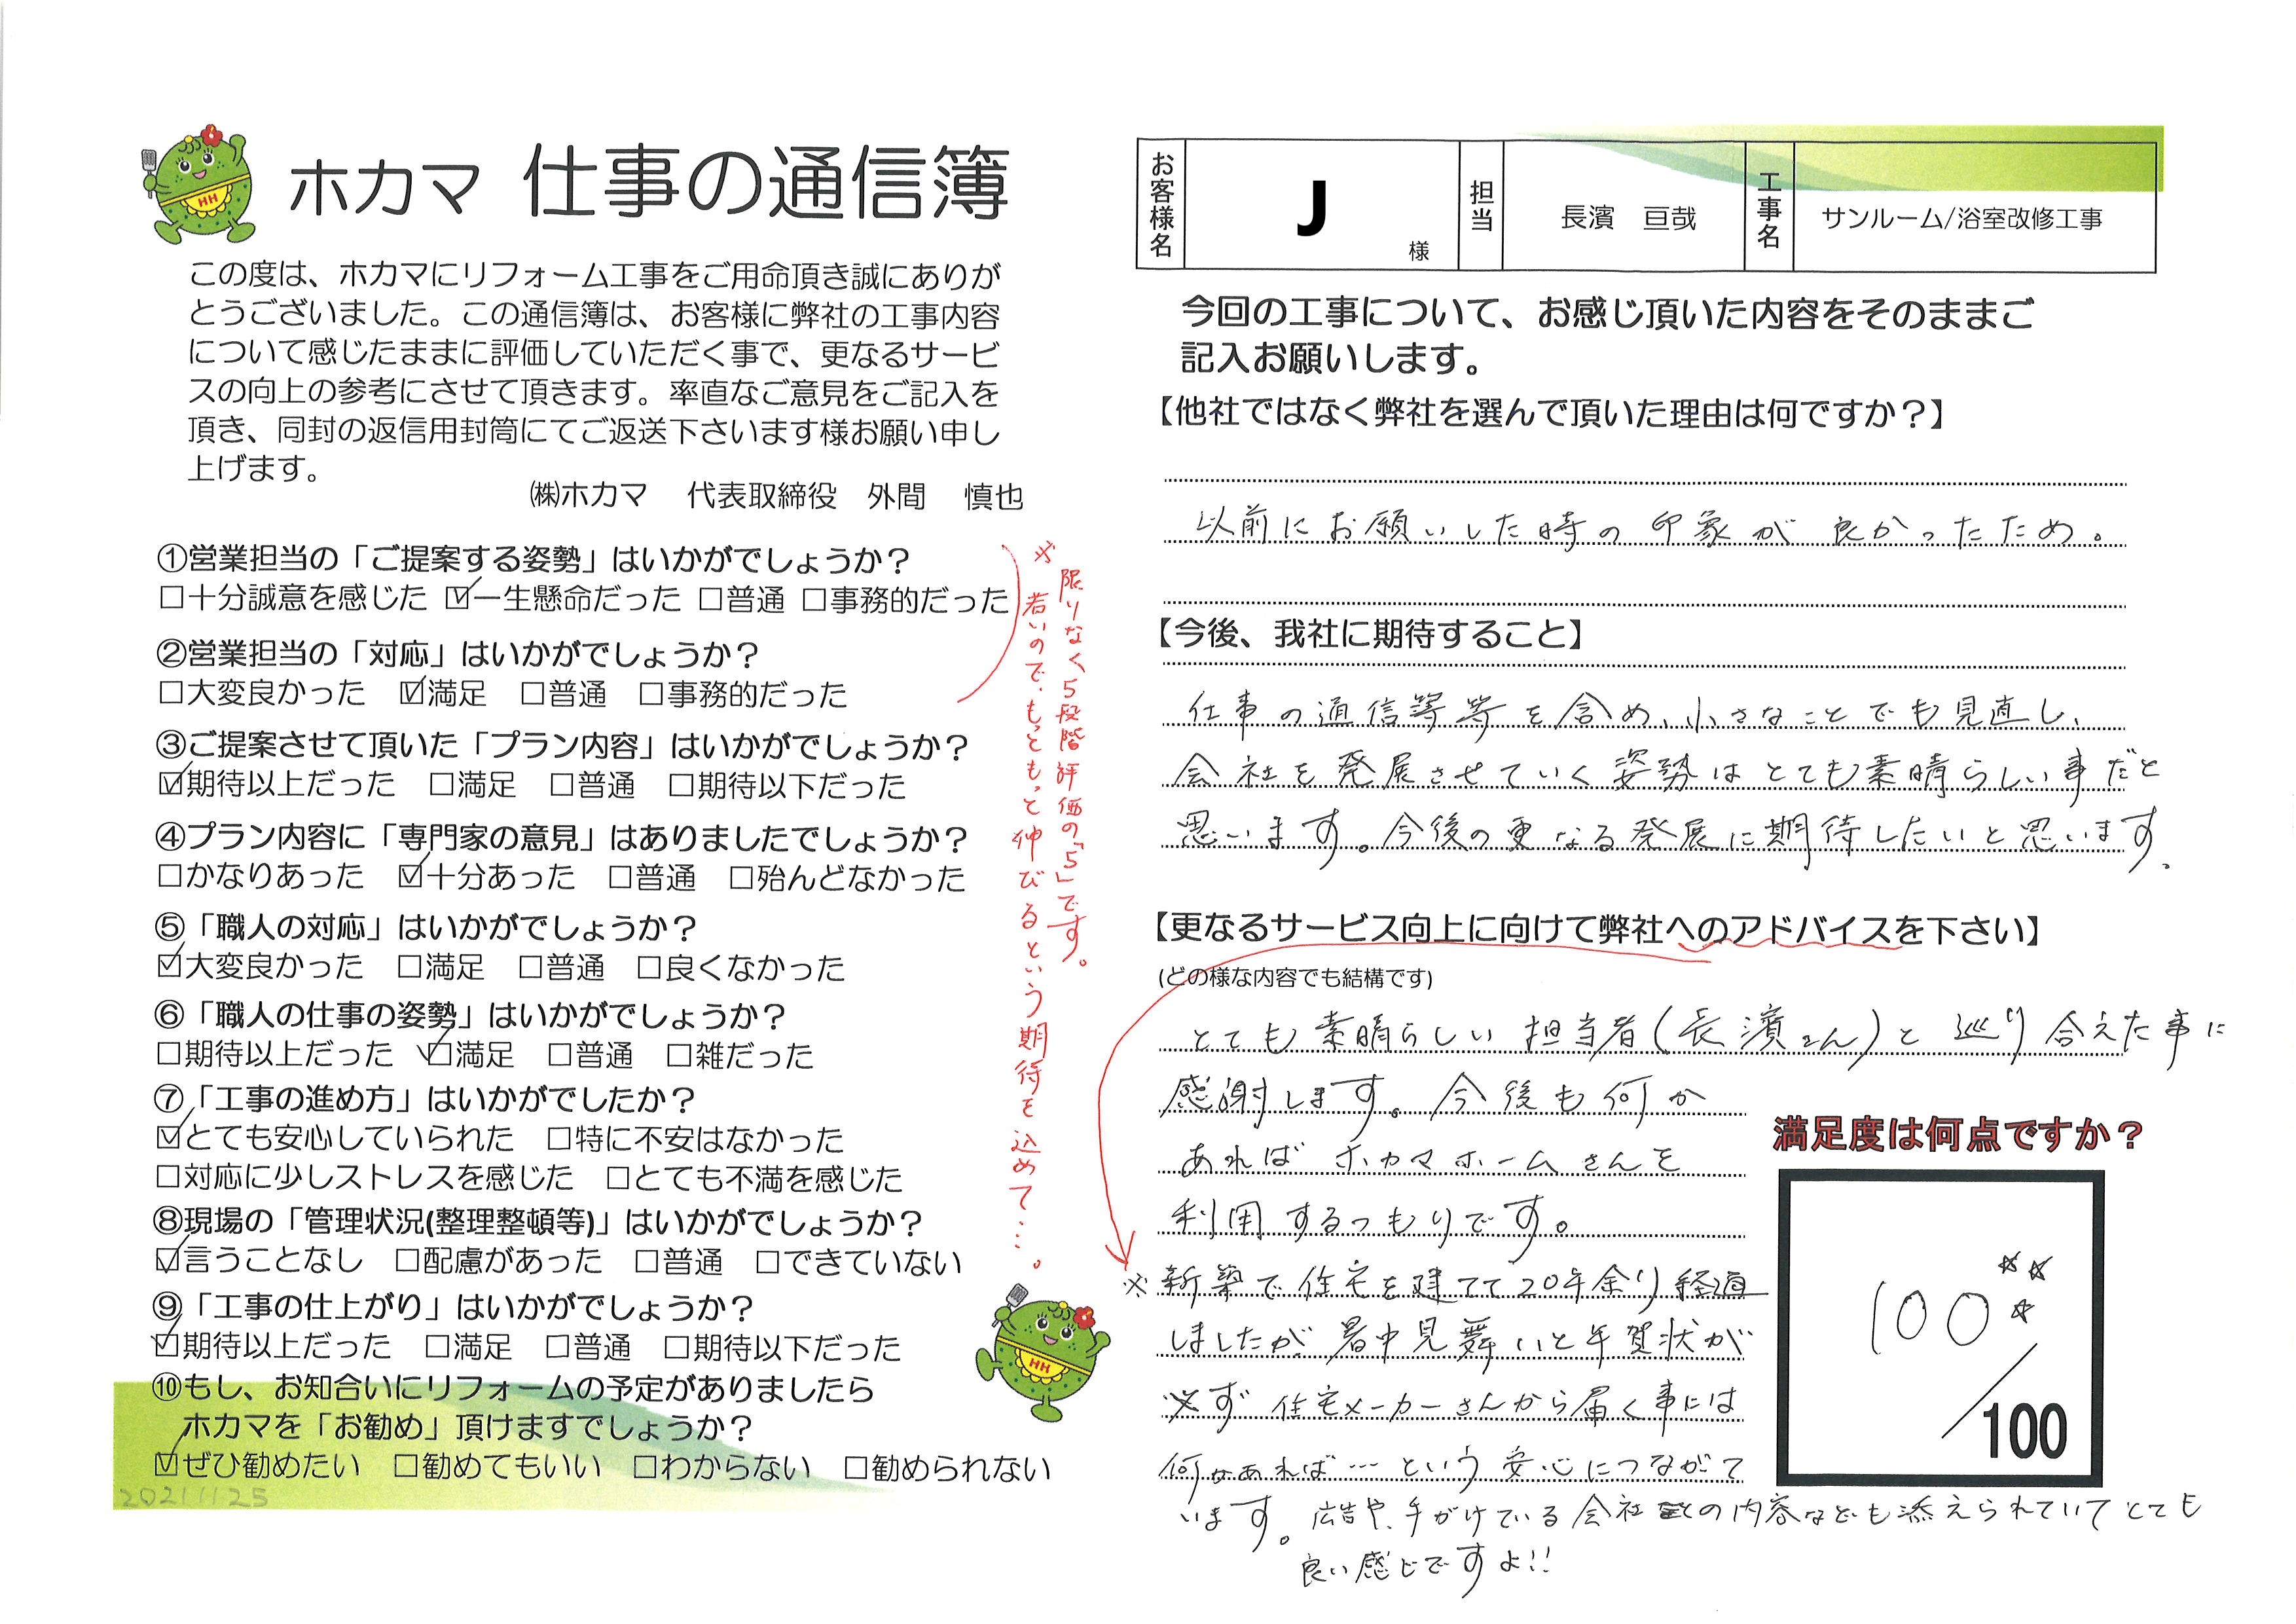 ホカマ 仕事の通信簿
この度は、ホカマにリフォーム工事をご用命頂き誠にありが
とうございました。この通信簿は、お客様に弊社の工事内容
について感じたままに評価していただく事で、更なるサービ
スの向上の参考にさせて頂きます。率直なご意見をご記入を
頂き、同封の返信用封筒にてご返送下さいます様お願い申し
上げます。
㈱ホカマ 代表取締役 外間 慎也
①営業担当の「ご提案する姿勢」はいかがでしょうか？
□十分誠意を感じた ☑一生懸命だった □普通 □事務的だった
②営業担当の「対応」はいかがでしょうか？
□大変良かった ☑満足 □普通 □事務的だった
③ご提案させて頂いた「プラン内容」はいかがでしょうか？
☑期待以上だった □満足 □普通 □期待以下だった
④プラン内容に「専門家の意見」はありましたでしょうか？
□かなりあった ☑十分あった □普通 □殆んどなかった
⑤「職人の対応」はいかがでしょうか？
☑大変良かった □満足 □普通 □良くなかった
⑥「職人の仕事の姿勢」はいかがでしょうか？
□期待以上だった ☑満足 □普通 □雑だった
⑦「工事の進め方」はいかがでしたか？
☑とても安心していられた □特に不安はなかった
□対応に少しストレスを感じた □とても不満を感じた
⑧現場の「管理状況(整理整頓等)」はいかがでしょうか？
☑言うことなし □配慮があった □普通 □できていない
⑨「工事の仕上がり」はいかがでしょうか？
☑期待以上だった □満足 □普通 □期待以下だった
⑩もし、お知合いにリフォームの予定がありましたら
ホカマを「お勧め」頂けますでしょうか？
☑ぜひ勧めたい □勧めてもいい □わからない □勧められない
20211125
※限りなく5段階評価の「5」です。
若いので、もっともっと伸びるという期待を込めて…。
HH
HH
お客様名 J 様 担当 長濱 亘哉 工事名 サンルーム/浴室改修工事
今回の工事について、お感じ頂いた内容をそのままご
記入お願いします。
【他社ではなく弊社を選んで頂いた理由は何ですか？】
以前にお願いした時の印象が良かったため。
【今後、我社に期待すること】
仕事の通信簿等を含め、小さなことでも見直し、
会社を発展させていく姿勢はとても素晴らしい事だと
思います。今後の更なる発展に期待したいと思います。
【更なるサービス向上に向けて弊社へのアドバイスを下さい】
(どの様な内容でも結構です)
とても素晴らしい担当者(長濱さん)と巡り合えた事に
感謝します。今後も何か
あればホカマホームさんを
利用するつもりです。
※新築で住宅を建てて20年余り経過
しましたが、暑中見舞いと年賀状が
必ず住宅メーカーさんから届く事には
何かあれば…という安心につながって
います。広告や、手がけている会社の内容なども添えられていてとても
良い感じですよ!!
満足度は何点ですか？
100☆☆☆
/100